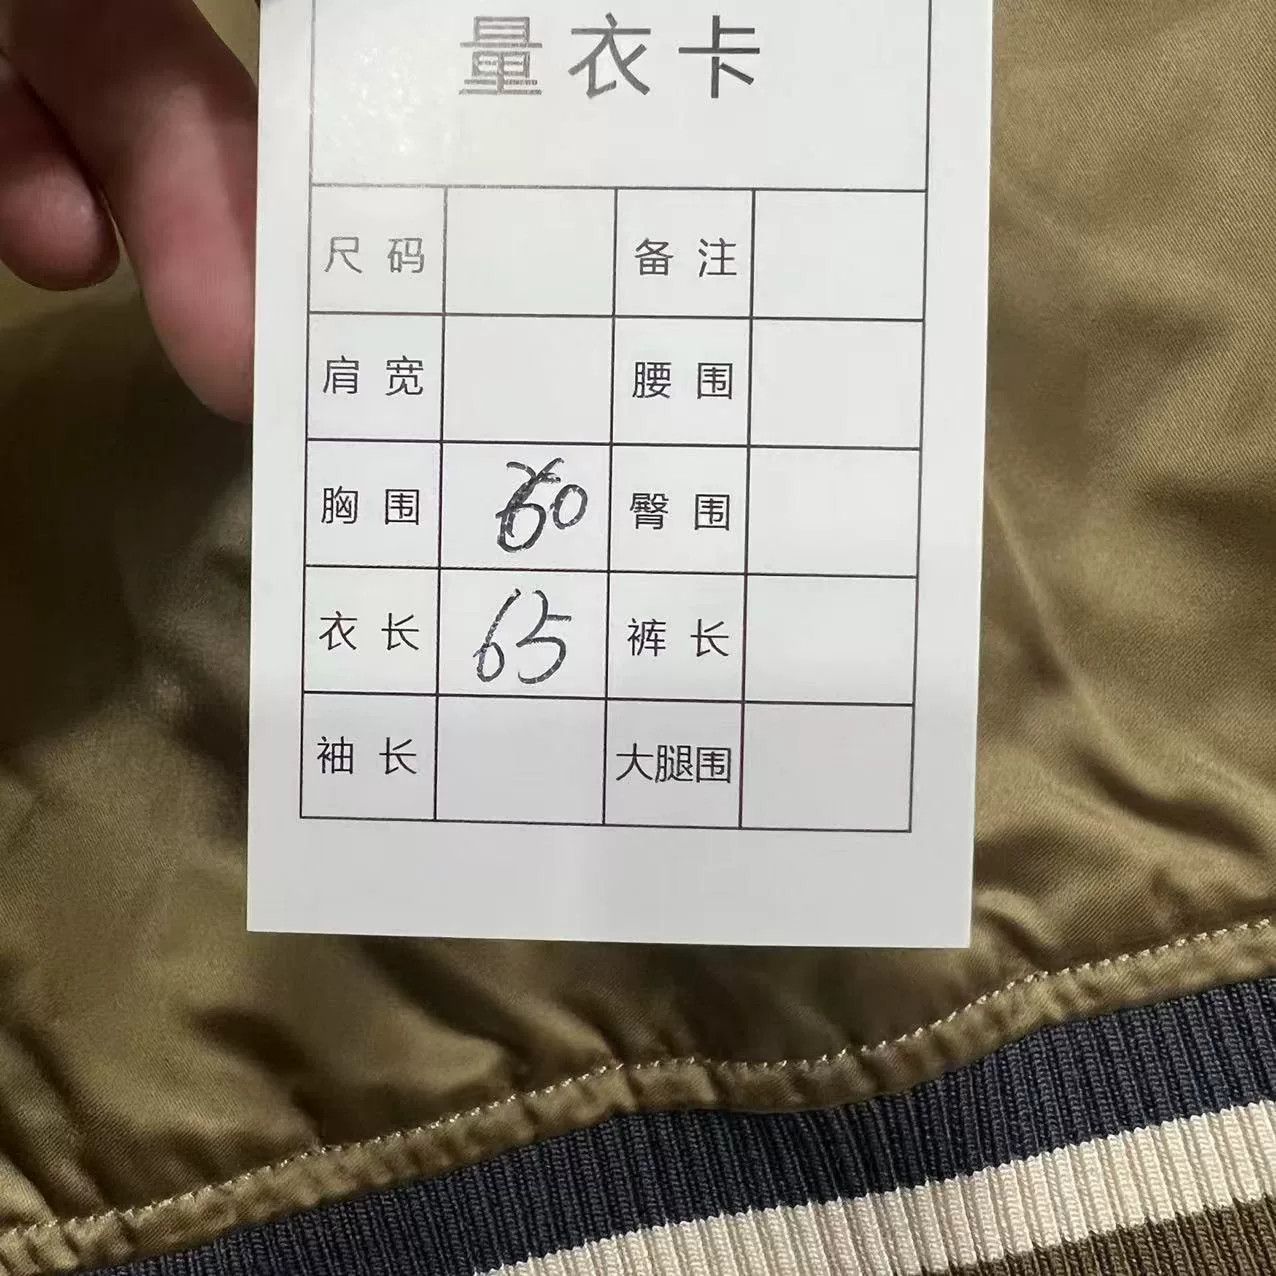 量衣卡
尺码 备注
肩宽 腰围
胸围 60 臀围
衣长 65 裤长
袖长 大腿围